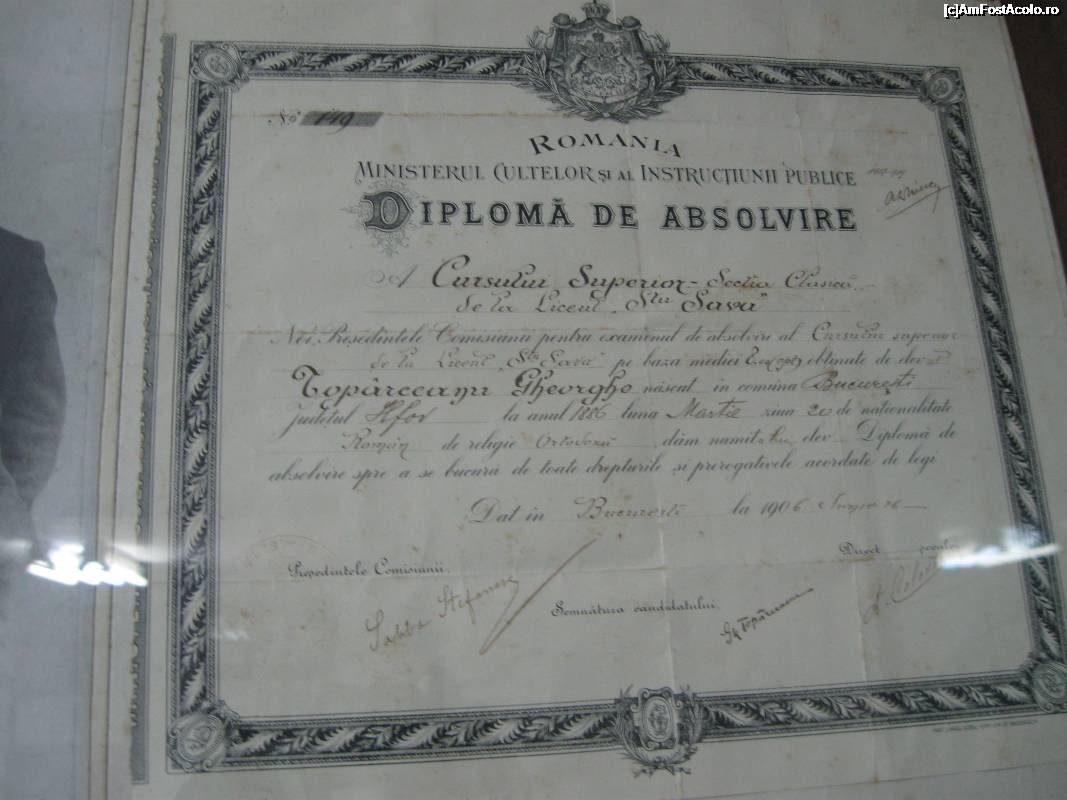 [c]AmFostAcolo.ro
No 149
ROMANIA
MINISTERUL CULTELOR ȘI AL INSTRUCȚIUNII PUBLICE
DIPLOMĂ DE ABSOLVIRE
A Cursului Superior - Secția Clasică
de la Liceul "Sfu Sava"
Noi, Președintele Comisiunii pentru examenul de absolvire al Cursului superior
de la Liceul "Sfu Sava" pe baza mediei obținute de elevul
Topârceanu Gheorghe născut în comuna București
Județul Ilfov la anul 1886 luna Martie ziua 20 de naționalitate
Român de religie Ortodoxă dăm numitului elev Diploma de
absolvire spre a se bucură de toate drepturile și prerogativele acordate de legi
Dat în București la 1906
Președintele Comisiunii. Direct. școalei
Semnătura candidatului.
Sabba Stefanescu Gh Topârceanu